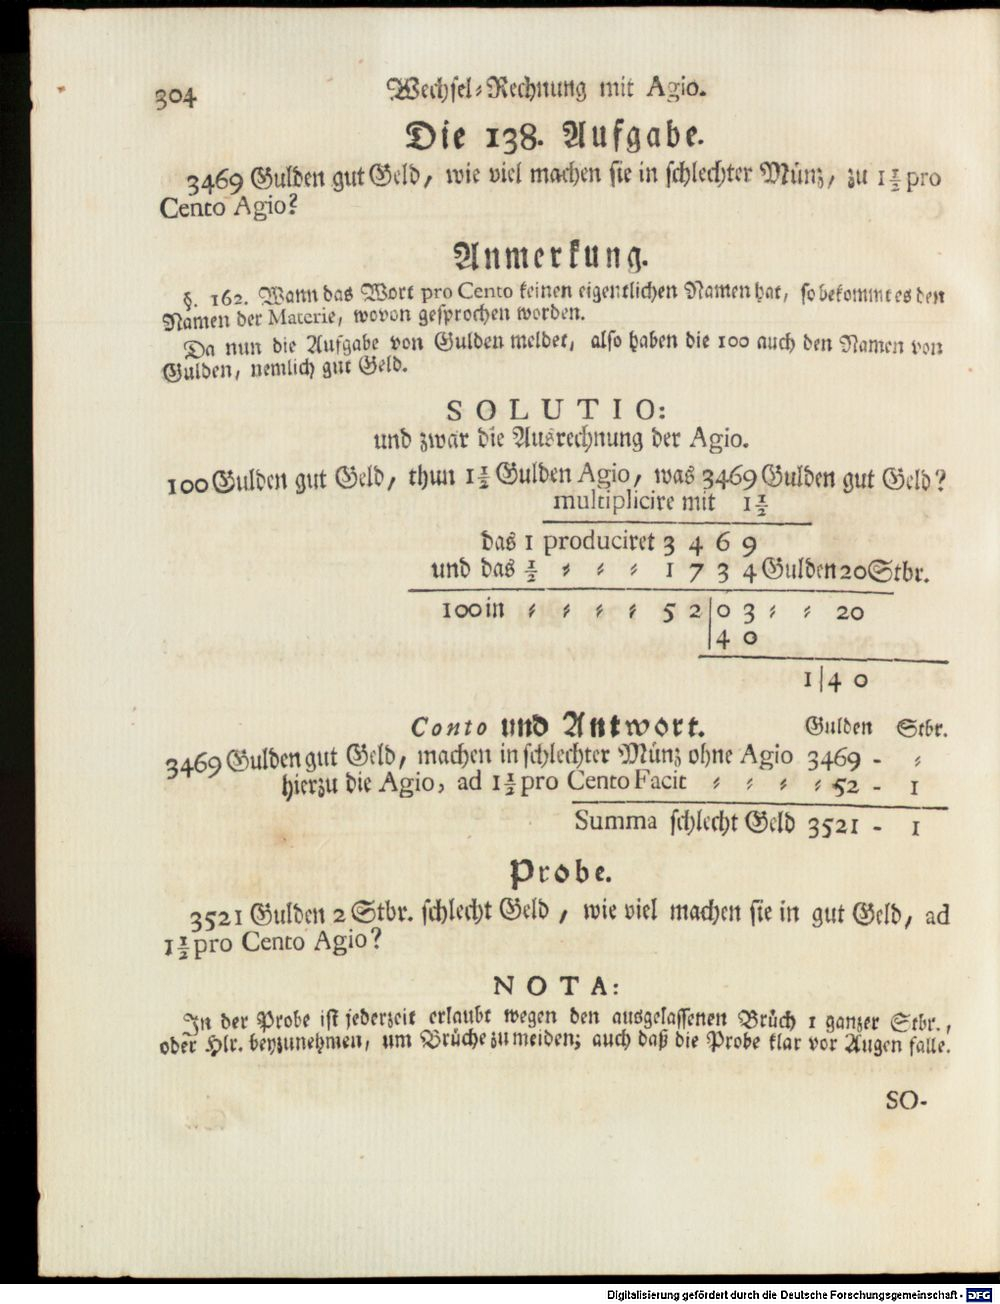 304
Wechsel-Rechnung mit Agio.
Die 138. Aufgabe.
3469 Gulden gut Geld, wie viel machen sie in schlechter Münz, zu 1½ pro
Cento Agio?
Anmerkung.
§. 162. Wann das Wort pro Cento keinen eigentlichen Namen hat, so bekommt es den
Namen der Materie, wovon gesprochen worden.
Da nun die Aufgabe von Gulden meldet, also haben die 100 auch den Namen von
Gulden, nemlich gut Geld.
SOLUTIO:
und zwar die Ausrechnung der Agio.
100 Gulden gut Geld, thun 1½ Gulden Agio, was 3469 Gulden gut Geld?
multiplicire mit 1½
das 1 produciret 3 4 6 9
und das ½ - - - 1 7 3 4 Gulden 20 Stbr.
100 in - - - - 5 2|0 3 - - 20
|4 0
1|4 0
Conto und Antwort. Gulden Stbr.
3469 Gulden gut Geld, machen in schlechter Münz ohne Agio 3469 - -
hierzu die Agio, ad 1½ pro Cento Facit - - - - 52 - 1
Summa schlecht Geld 3521 - 1
Probe.
3521 Gulden 2 Stbr. schlecht Geld, wie viel machen sie in gut Geld, ad
1½ pro Cento Agio?
NOTA:
In der Probe ist jederzeit erlaubt wegen den ausgelassenen Brüch 1 ganzer Stbr.,
oder Hlr. beyzunehmen, um Brüche zu meiden; auch daß die Probe klar vor Augen falle.
SO-
Digitalisierung gefördert durch die Deutsche Forschungsgemeinschaft - DFG